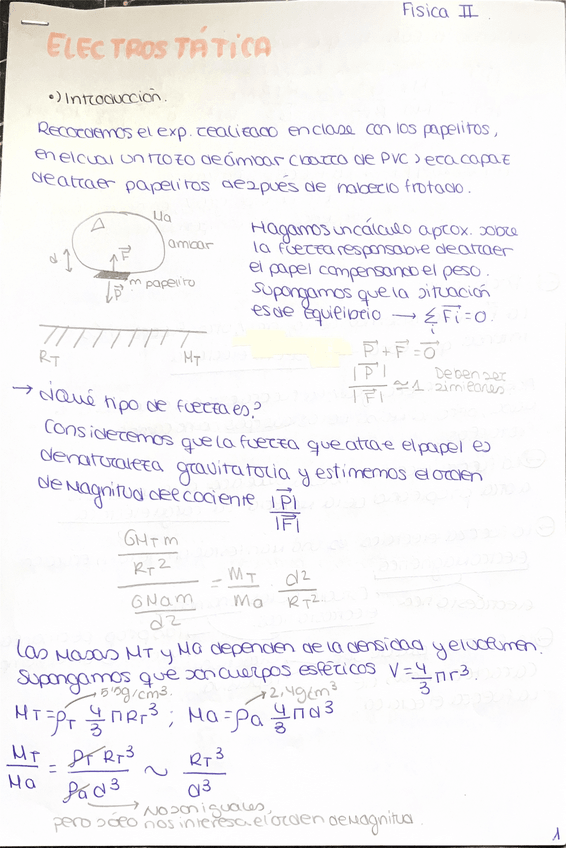 Fisica II
ELECTROSTÁTICA
•) Introducción.
Recordemos el exp. realizado en clase con los papelitos,
en el cual un trozo de ámbar (barra de PVC) era capaz
de atraer papelitos después de haberlo frotado.
Ma
ámbar
d
F⃗
m papelito
P⃗
RT
MT
Hagamos un cálculo aprox. sobre
la fuerza responsable de atraer
el papel compensando el peso.
Supongamos que la situación
es de equilibrio → Σi F⃗i = 0.
P⃗ + F⃗ = 0⃗
|P⃗| / |F⃗| ≃ 1 Deben ser similares
→ ¿Qué tipo de fuerza es?
Consideremos que la fuerza que atrae el papel es
de naturaleza gravitatoria y estimemos el orden
de Magnitud del cociente |P⃗| / |F⃗|
(GMTm / RT²) / (GMam / d²) = MT/Ma · d²/RT²
Las Masas MT y Ma dependen de la densidad y el volumen.
Supongamos que son cuerpos esféricos V = 4/3 πr³.
5'5g/cm³. 2,4g/cm³
MT = ρT 4/3 πRT³ ; Ma = ρa 4/3 πd³
MT/Ma = ρT RT³ / ρa d³ ~ RT³/d³
No son iguales,
pero sólo nos interesa el orden de Magnitud.
1